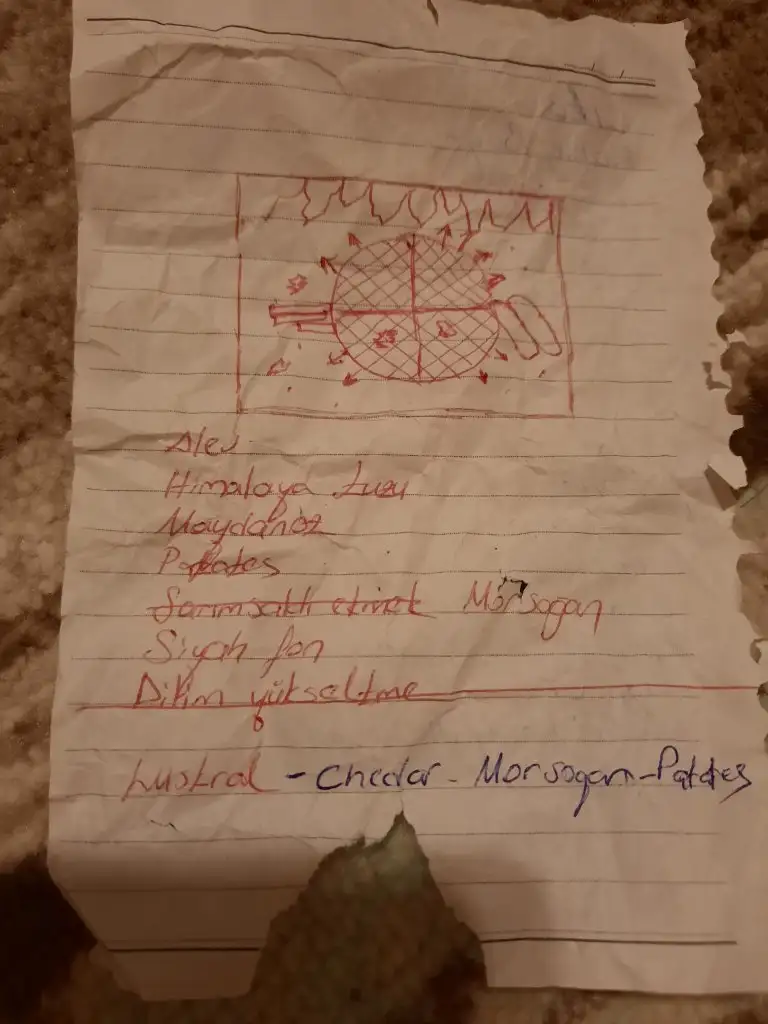 Alev
Himalaya tuzu
Maydanoz
Patates
Sarımsaklı ekmek Morsoğan
Siyah fon
Dilim yükseltme
Lustral - Chedar - Morsogan - Patates